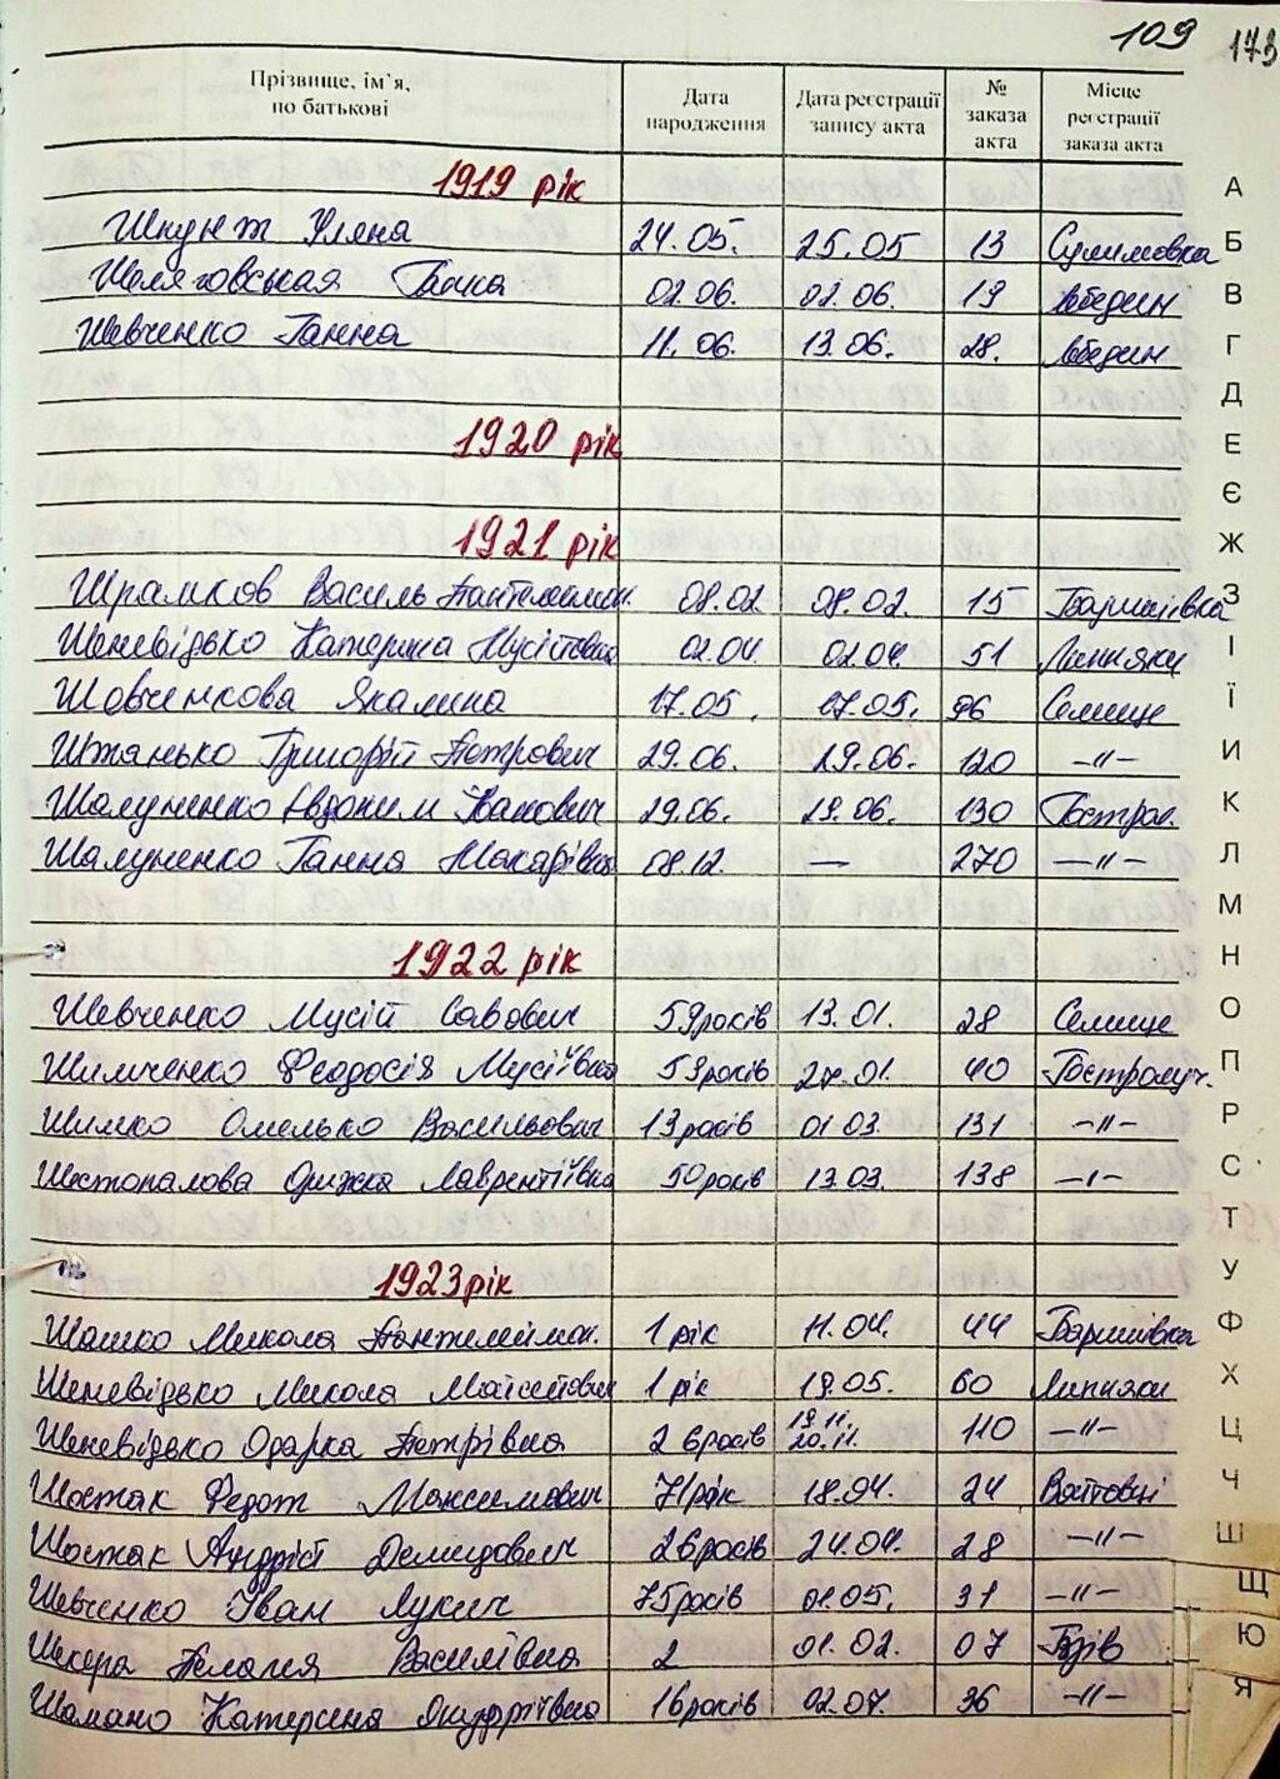 109 173
Прізвище, ім`я, по батькові Дата народження Дата реєстрації запису акта № заказа акта Місце регстрації заказа акта
1919 рік
А
Шнунт Уляна 24.05. 25.05 13 Сулимовка Б
Шеляговськая Ганна 02.06. 02.06. 19 Лебедин В
Шевченко Ганна 11.06. 13.06. 28. Лебедин Г
Д
1920 рік Е
Є
1921 рік Ж
Шрамков Василь Пантелеймон. 08.02. 08.02. 15 Баришівка З
Шеневідько Катерина Мусіївна 02.04. 02.04. 51 Лихняки І
Шовченкова Якилина 17.05. 17.05. 96 Селище Ї
Шжанько Григорій Петрович 29.06. 29.06. 120 -"- И
Шалуненко Євдоким Іванович 29.06. 29.06. 130 Гострол. К
Шалуненко Ганна Макарівна 08.12. — 270 -"- Л
М
1922 рік Н
Шевченко Мусій Савович 59років 13.01. 28 Селище О
Шимченко Феодосія Мусіївна 53років 27.01. 40 Гостролуч. П
Шимко Омелько Васильович 13років 01.03. 131 -"- Р
Шестопалова Оришка Лаврентіївна 50років 13.03. 138 -"- С
Т
1923 рік У
Шашко Микола Пантелеймон. 1 рік 11.04. 44 Баришівка Ф
Шеневідько Микола Мойсейович 1 рік 19.05. 60 Липняки Х
Шеневідько Одарка Петрівна 26років 19.11. 20.11. 110 -"- Ц
Шостак Федот Максимович 71рік 18.04. 24 Войтовці Ч
Шостак Андрій Демидович 26років 24.04. 28 -"- Ш
Шевченко Іван Лукич 75років 01.05. 31 -"- Щ
Шекера Пелагея Василівна 2 01.02. 07 Бзів Ю
Шамано Катерина Онуфріївна 16років 02.07. 36 -"- Я